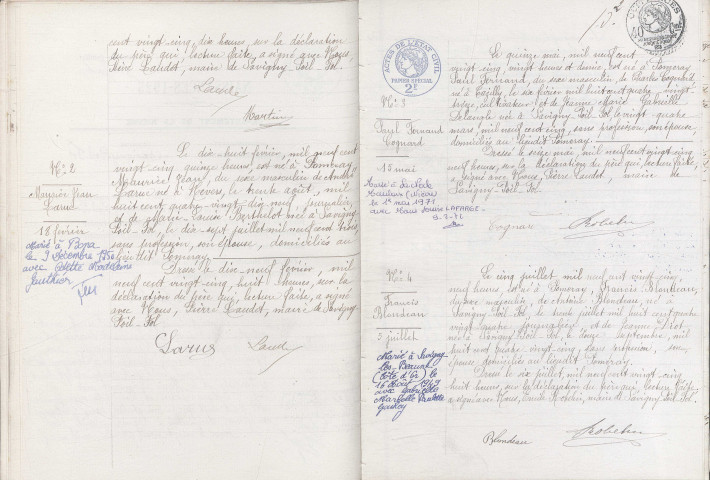 cent vingt-cinq, dix heures, sur la déclaration
du père qui, lecture faite, a signé avec Nous,
Pierre Laudet, maire de Savigny-Poil-Fol.
Martin
N° 2
18 février
Marié à
le 9 décembre 1950
avec Odette Madeleine
Gauthier
Le dix-huit février, mil neuf cent
vingt-cinq, quinze heures, est né à
Maurice Jean, du sexe masculin, de André
Larue né à Nevers, le trente août, mil
huit cent quatre-vingt dix-neuf, journalier,
et de Marie-Louise Berthelot née à Savigny
Poil-Fol, le dix-sept juillet mil neuf cent
sans profession, son épouse, domiciliés au
lieudit
Dressé le dix-neuf février, mil
neuf cent vingt-cinq, huit heures, sur la
déclaration du père qui, lecture faite, a signé
avec Nous, Pierre Laudet, maire de Savigny
Poil-Fol.
Larue
ACTES DE L'ETAT CIVIL
PAPIER SPECIAL
2F
N° 3
Paul Fernand
Cognard
15 mai
le 1er mars 1971
avec Marie Louise LAFARGE
Le quinze mai, mil neuf cent
vingt-cinq, vingt heures et demie, est né à
Paul Fernand, du sexe masculin, de Charles Cognard
né à le six février mil huit cent quatre-vingt
treize, cultivateur, et de Jeanne Marie Gabrielle
née à Savigny-Poil-Fol, le vingt-quatre
mars, mil neuf cent cinq, sans profession, son épouse,
domiciliés au lieudit
Dressé le seize mai, mil neuf cent vingt-cinq,
neuf heures, sur la déclaration du père qui, lecture faite,
a signé avec Nous, Pierre Laudet, maire de
Savigny-Poil-Fol.
N° 4
Francis
Blondeau
5 juillet
Marié à Savigny
les Beaune
(Côte d'Or) le
16 Août 1949
avec Gabrielle
Marcelle Paulette
Le cinq juillet, mil neuf cent vingt cinq,
heures, est né à Francis Blondeau,
du sexe masculin, de Antoine Blondeau, né à
Savigny Poil-Fol, le trente juillet mil huit cent quatre
vingt quatre, journalier, et de Jeanne
née à Savigny Poil-Fol, le douze septembre, mil
huit cent quatre vingt cinq, sans profession, son
épouse, domiciliés au lieudit
Dressé le six juillet, mil neuf cent vingt-cinq,
huit heures, sur la déclaration du père qui, lecture faite,
a signé avec Nous, maire de Savigny Poil-Fol.
Blondeau